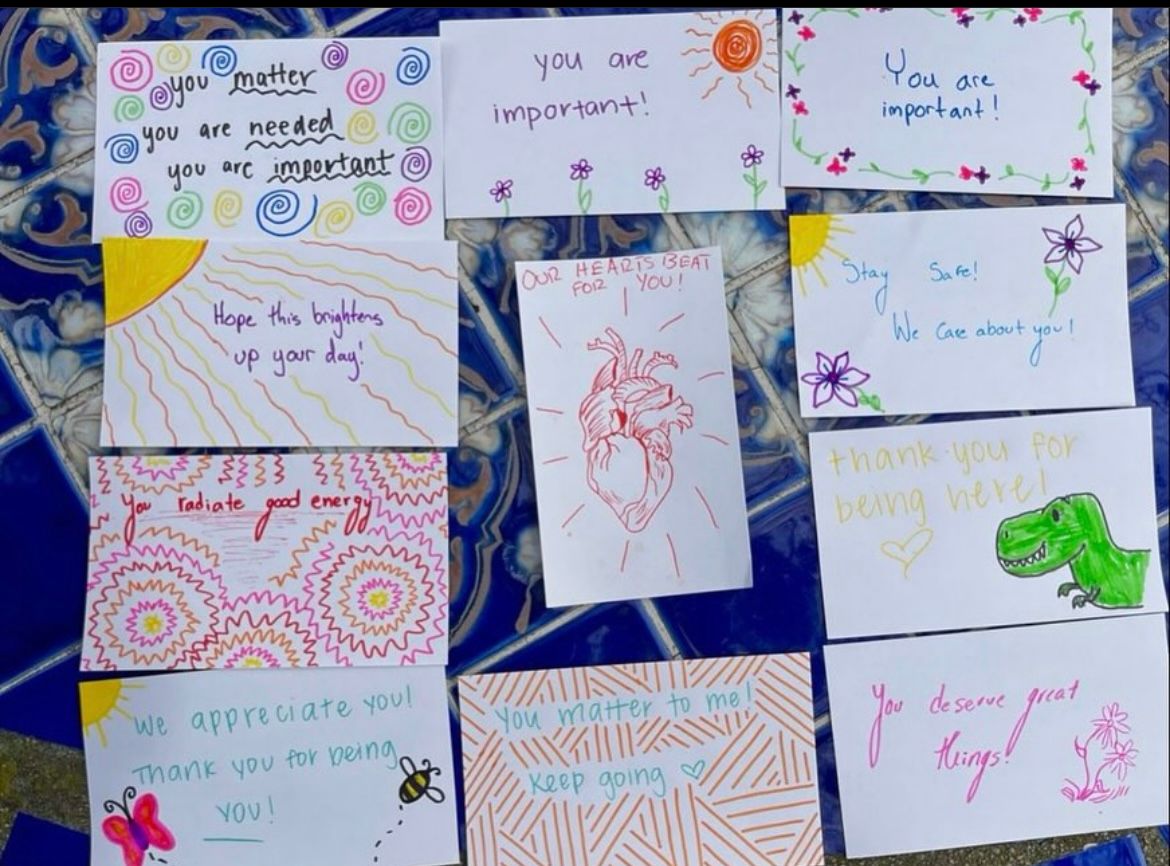 you matter
you are needed
you are important
you are
important!
You are
important!
Hope this brightens
up your day!
OUR HEARTS BEAT
FOR YOU!
Stay Safe!
We care about you!
You radiate good energy
thank you for
being here!
We appreciate you!
Thank you for being
YOU!
You matter to me!
Keep going
You deserve great
things!